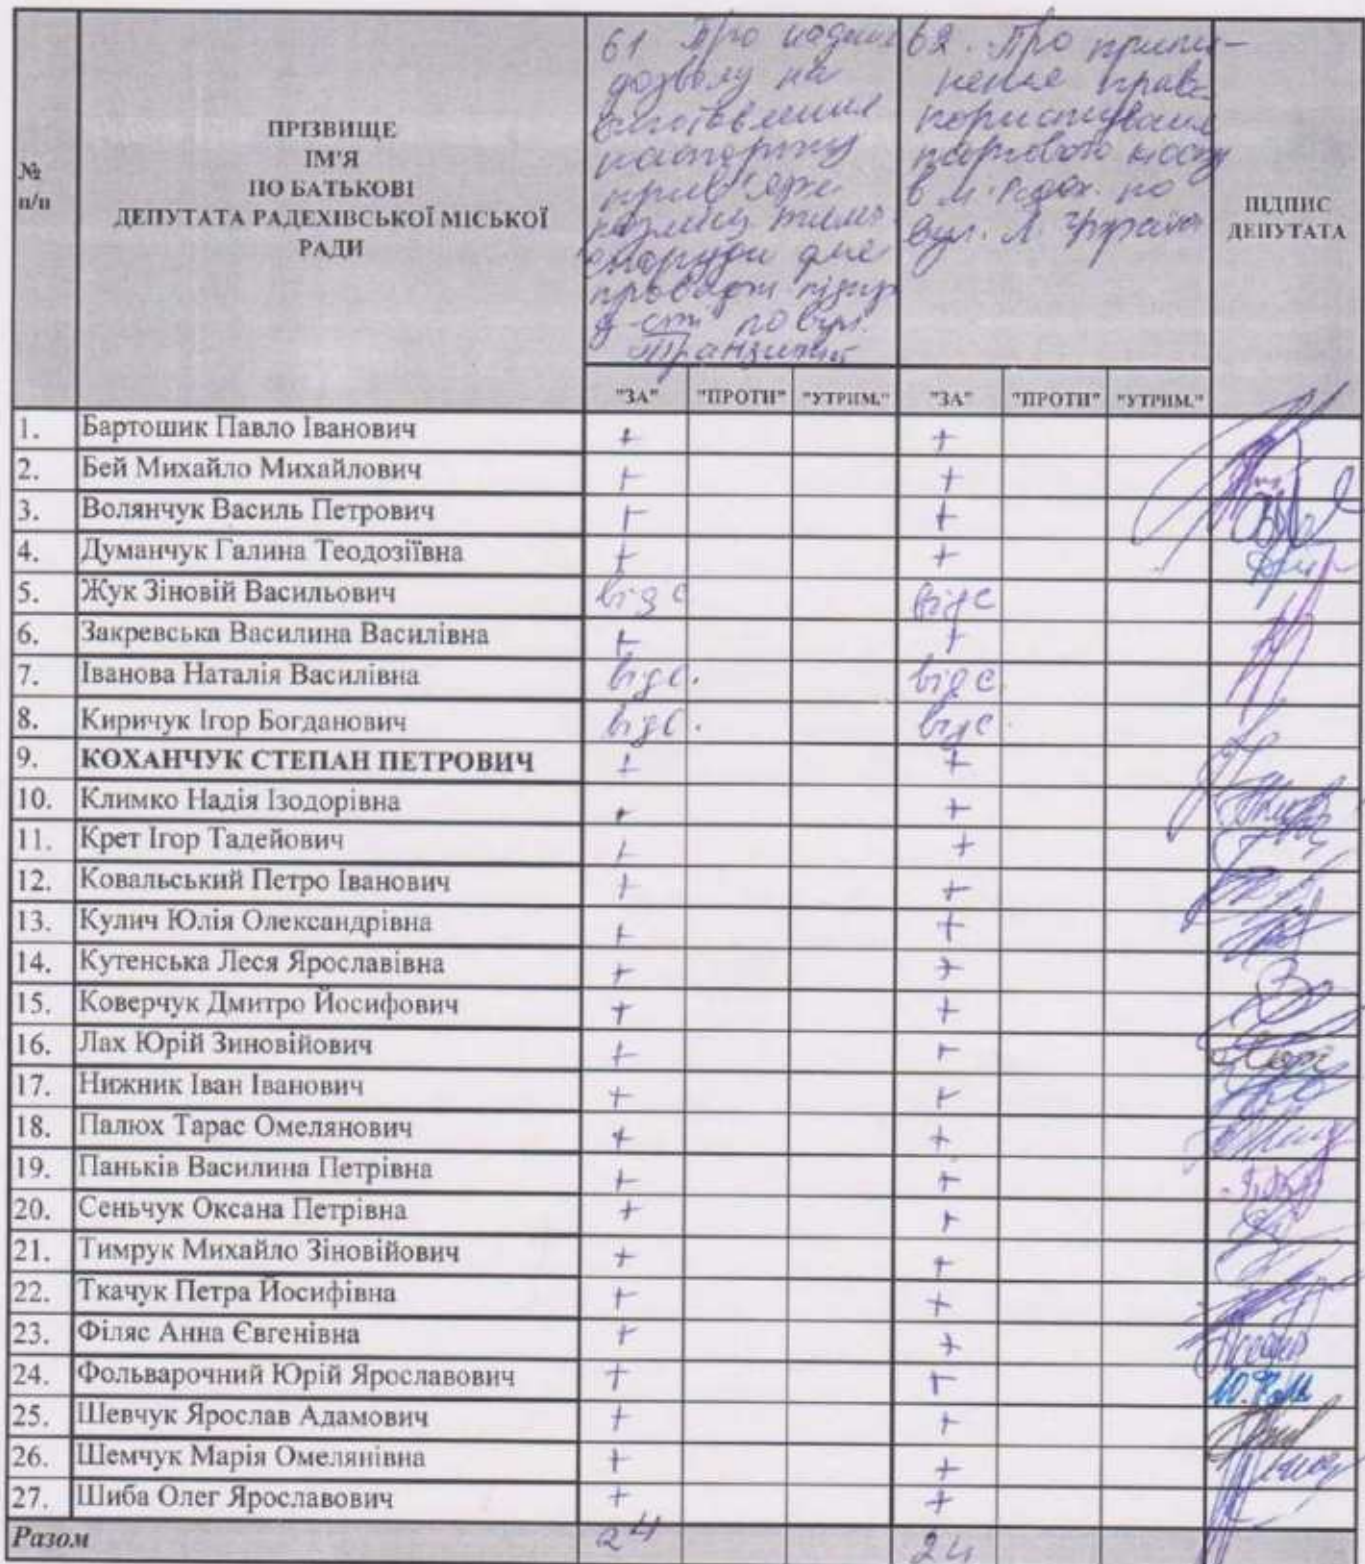 №
п/п
ПРІЗВИЩЕ
ІМ'Я
ПО БАТЬКОВІ
ДЕПУТАТА РАДЕХІВСЬКОЇ МІСЬКОЇ
РАДИ
61 Про
дозволу на
виготовлення
паспорту
споруди для
по вул.
62. Про припи-
нення прав
користування
в м. по
вул. Л. Українки
ПІДПИС
ДЕПУТАТА
"ЗА" "ПРОТИ" "УТРИМ." "ЗА" "ПРОТИ" "УТРИМ."
1. Бартошик Павло Іванович + +
2. Бей Михайло Михайлович + +
3. Волянчук Василь Петрович + +
4. Думанчук Галина Теодозіївна + +
5. Жук Зіновій Васильович відс відс
6. Закревська Василина Василівна + +
7. Іванова Наталія Василівна відс. відс.
8. Киричук Ігор Богданович відс. відс.
9. КОХАНЧУК СТЕПАН ПЕТРОВИЧ + +
10. Климко Надія Ізодорівна + +
11. Крет Ігор Тадейович + +
12. Ковальський Петро Іванович + +
13. Кулич Юлія Олександрівна + +
14. Кутенська Леся Ярославівна + +
15. Коверчук Дмитро Йосифович + +
16. Лах Юрій Зиновійович + +
17. Нижник Іван Іванович + +
18. Палюх Тарас Омелянович + +
19. Паньків Василина Петрівна + +
20. Сеньчук Оксана Петрівна + +
21. Тимрук Михайло Зіновійович + +
22. Ткачук Петра Йосифівна + +
23. Філяс Анна Євгенівна + +
24. Фольварочний Юрій Ярославович + +
25. Шевчук Ярослав Адамович + +
26. Шемчук Марія Омелянівна + +
27. Шиба Олег Ярославович + +
Разом 24 24